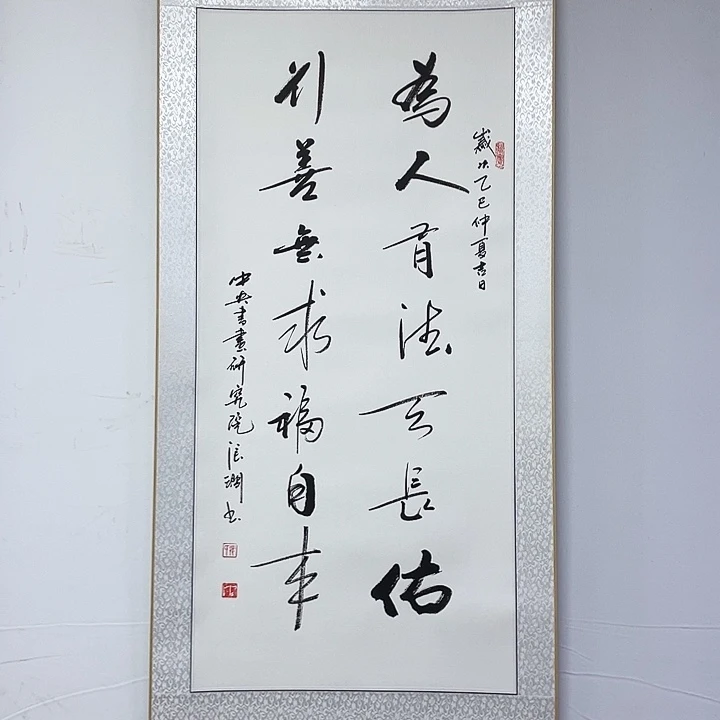 歲次乙巳仲夏吉日
為人有德天長佑
行善無求福自來
中央書畫研究院張 書